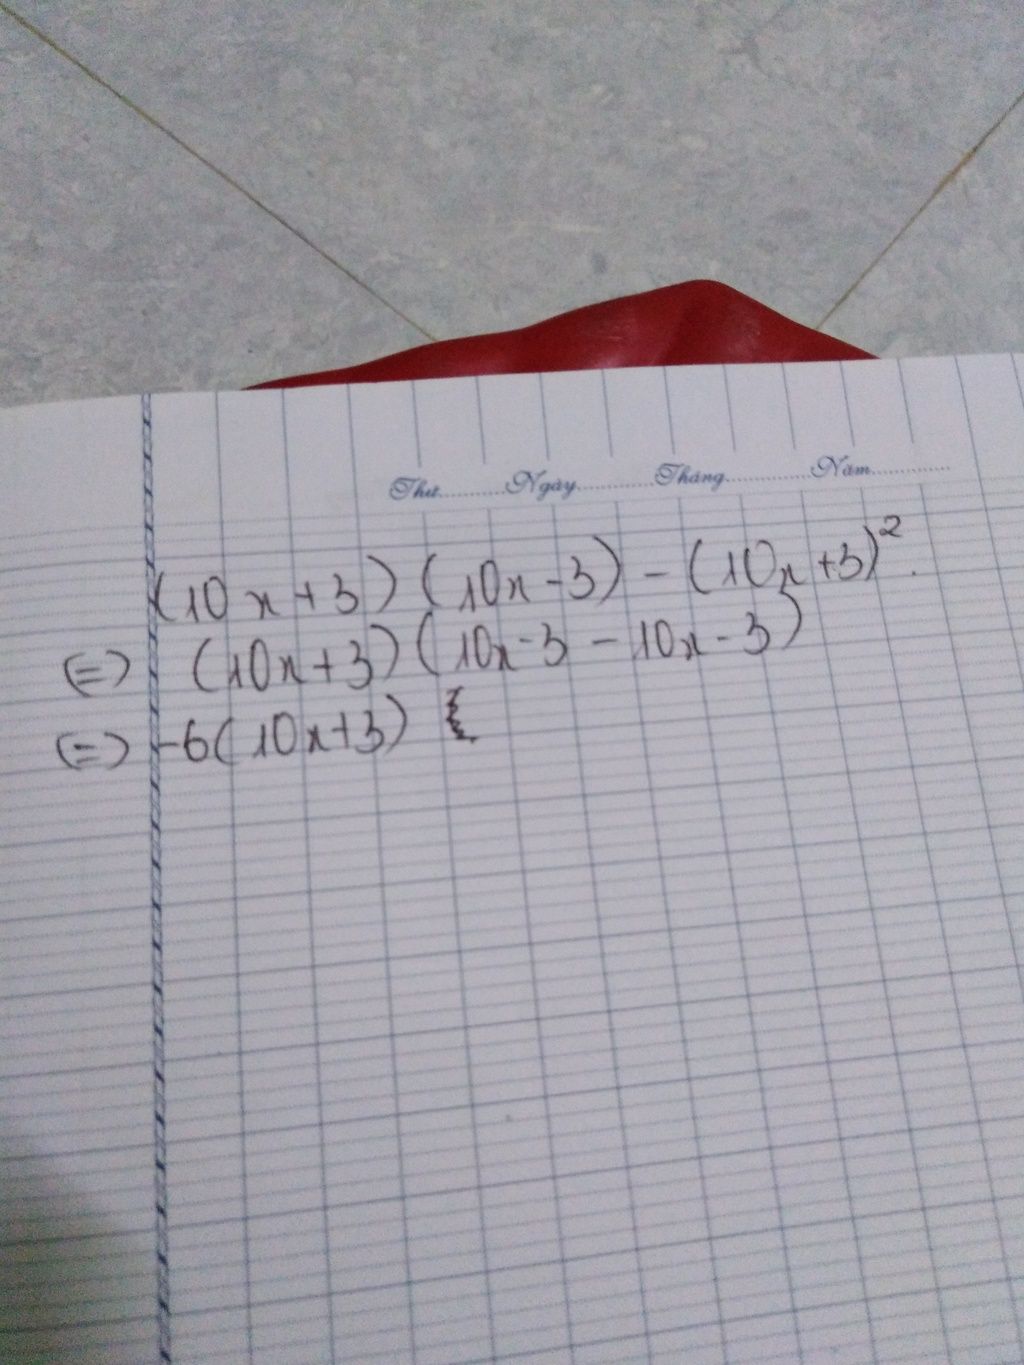 Thứ............Ngày............Tháng............Năm............
(10x+3)(10x-3)-(10x+3)².
(=) (10x+3)(10x-3-10x-3)
(=) -6(10x+3)